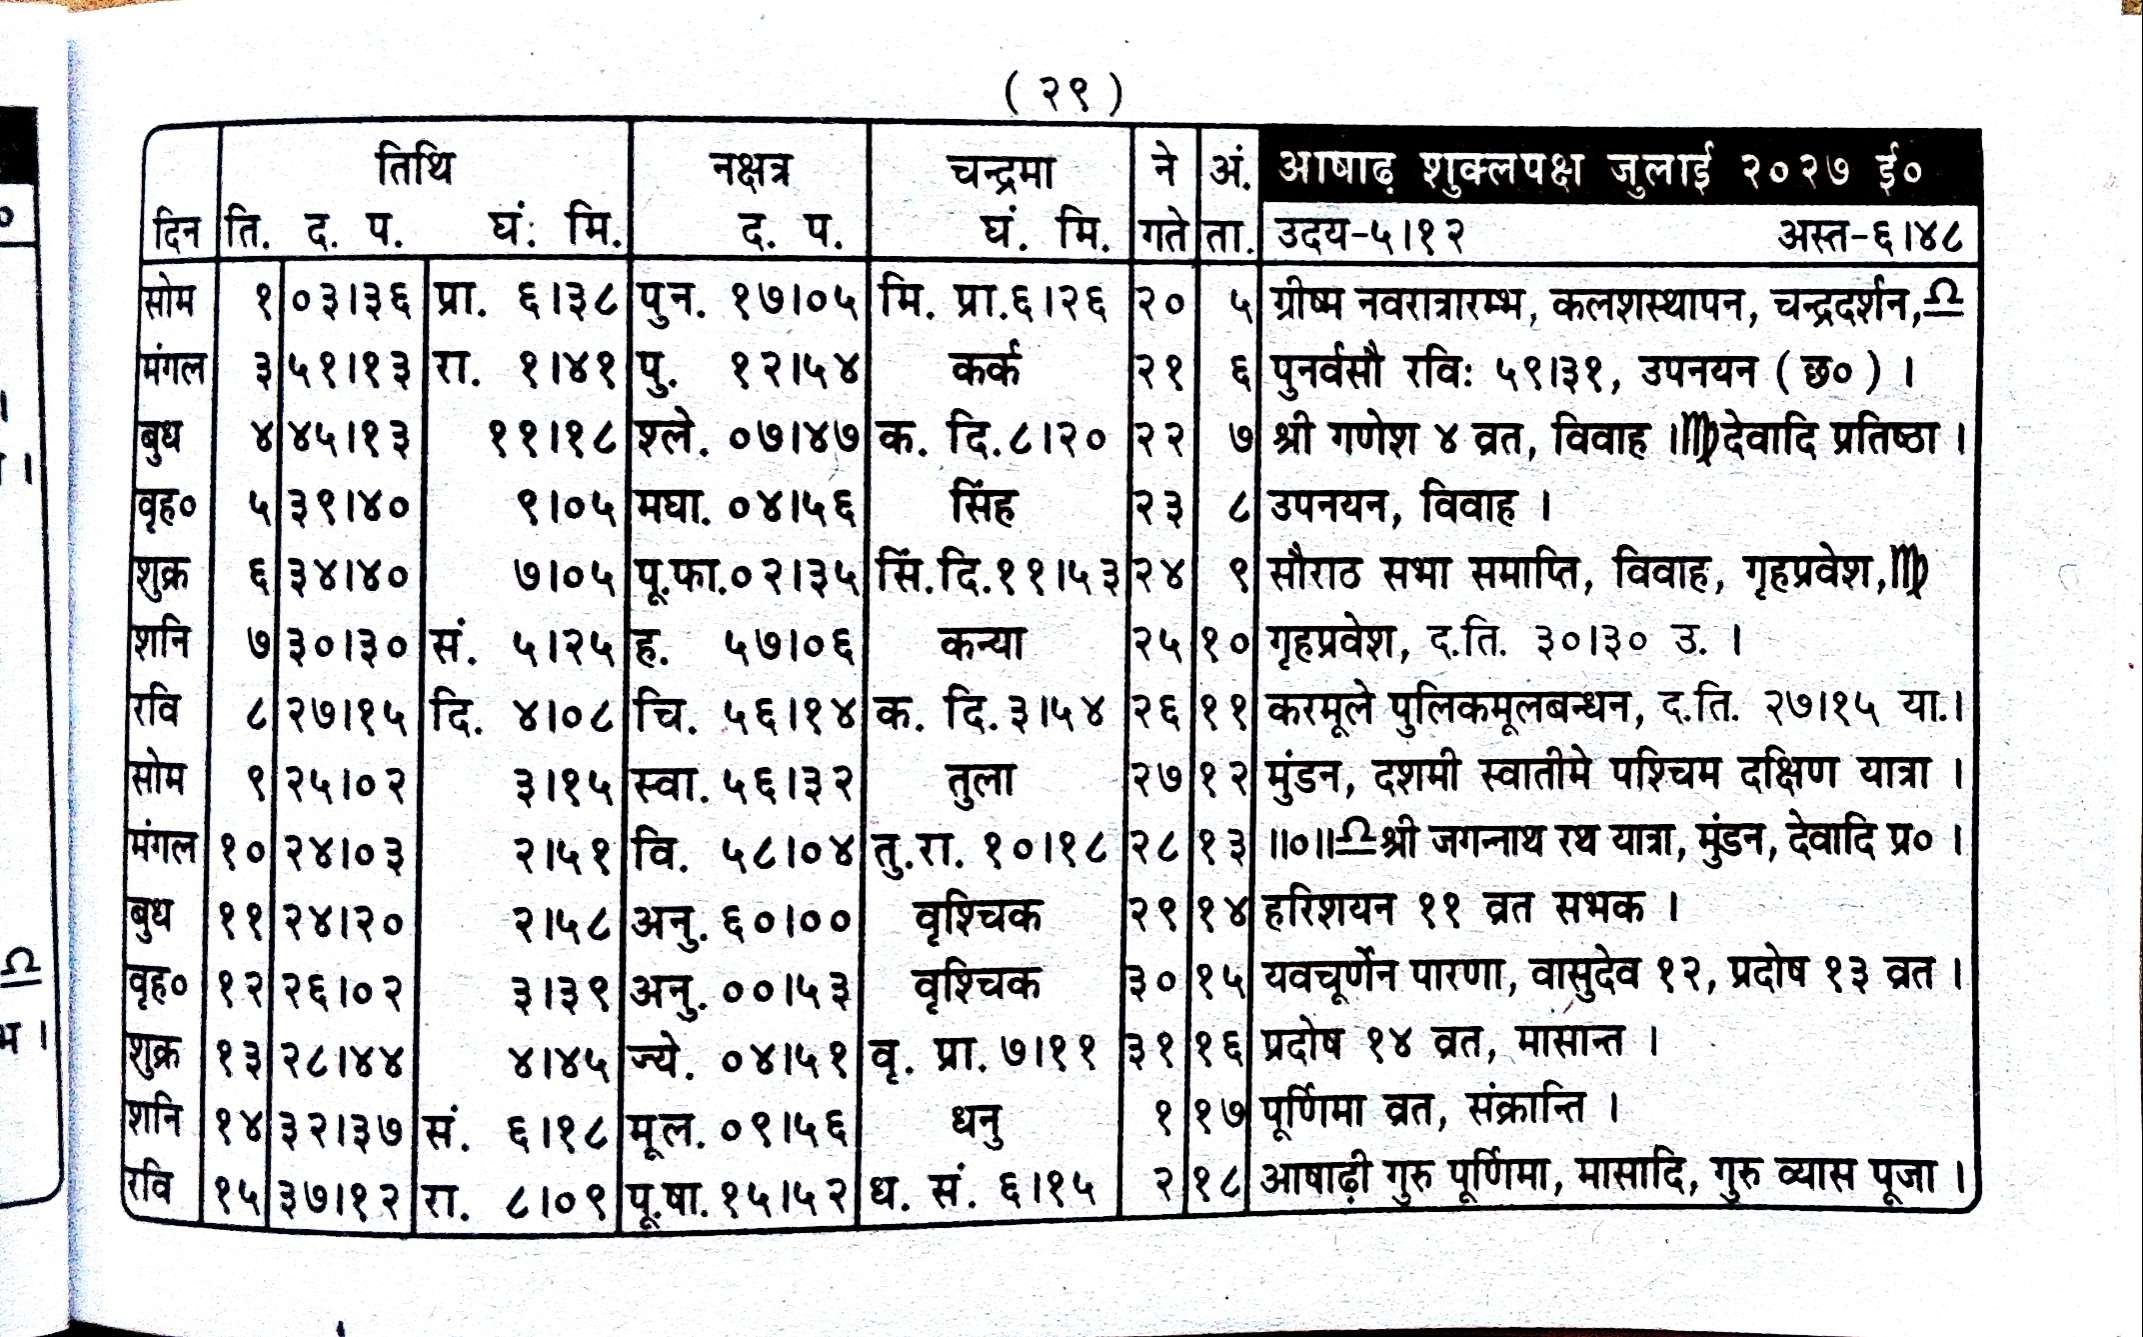 ( २९ )
तिथि नक्षत्र चन्द्रमा ने अं. आषाढ़ शुक्लपक्ष जुलाई २०२७ ई०
दिन ति. द. प. घं: मि. द. प. घं. मि. गते ता. उदय-५।१२ अस्त-६।४८
सोम १ ०३।३६ प्रा. ६।३८ पुन. १७।०५ मि. प्रा.६।२६ २० ५ ग्रीष्म नवरात्रारम्भ, कलशस्थापन, चन्द्रदर्शन,♎
मंगल ३ ५१।१३ रा. १।४१ पु. १२।५४ कर्क २१ ६ पुनर्वसौ रवि: ५९।३१, उपनयन ( छ० ) ।
बुध ४ ४५।१३ ११।१८ श्ले. ०७।४७ क. दि.८।२० २२ ७ श्री गणेश ४ व्रत, विवाह ।♍देवादि प्रतिष्ठा ।
वृह० ५ ३९।४० ९।०५ मघा. ०४।५६ सिंह २३ ८ उपनयन, विवाह ।
शुक्र ६ ३४।४० ७।०५ पू.फा.०२।३५ सिं.दि.११।५३ २४ ९ सौराठ सभा समाप्ति, विवाह, गृहप्रवेश,♍
शनि ७ ३०।३० सं. ५।२५ ह. ५७।०६ कन्या २५ १० गृहप्रवेश, द.ति. ३०।३० उ. ।
रवि ८ २७।१५ दि. ४।०८ चि. ५६।१४ क. दि.३।५४ २६ ११ करमूले पुलिकमूलबन्धन, द.ति. २७।१५ या.।
सोम ९ २५।०२ ३।१५ स्वा. ५६।३२ तुला २७ १२ मुंडन, दशमी स्वातीमे पश्चिम दक्षिण यात्रा ।
मंगल १० २४।०३ २।५१ वि. ५८।०४ तु.रा. १०।१८ २८ १३ ॥०॥♎श्री जगन्नाथ रथ यात्रा, मुंडन, देवादि प्र० ।
बुध ११ २४।२० २।५८ अनु. ६०।०० वृश्चिक २९ १४ हरिशयन ११ व्रत सभक ।
वृह० १२ २६।०२ ३।३९ अनु. ००।५३ वृश्चिक ३० १५ यवचूर्णेन पारणा, वासुदेव १२, प्रदोष १३ व्रत ।
शुक्र १३ २८।४४ ४।४५ ज्ये. ०४।५१ वृ. प्रा. ७।११ ३१ १६ प्रदोष १४ व्रत, मासान्त ।
शनि १४ ३२।३७ सं. ६।१८ मूल. ०९।५६ धनु १ १७ पूर्णिमा व्रत, संक्रान्ति ।
रवि १५ ३७।१२ रा. ८।०९ पू.षा. १५।५२ ध. सं. ६।१५ २ १८ आषाढ़ी गुरु पूर्णिमा, मासादि, गुरु व्यास पूजा ।